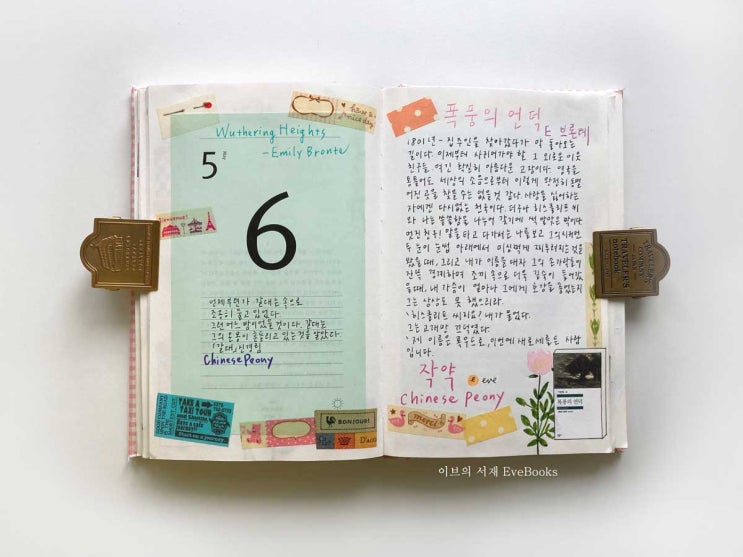 have a
nice day
Wuthering Heights
- Emily Bronte
5
6
언제부턴가 갈대는 속으로
조용히 울고 있었다.
그런 어느 밤이었을 것이다. 갈대는
그의 온몸이 흔들리고 있는 것을 알았다.
「갈대」 신경림
Chinese Peony
TAKE A
TAXI TOUR
BONJOUR!
폭풍의 언덕
E. 브론테
1801년 - 집주인을 찾아갔다가 막 돌아오는
길이다. 이제부터 사귀어가야 할 그 외로운 이웃
친구를. 여긴 확실히 아름다운 고장이다. 영국을
통틀어도 세상의 소음으로부터 이렇게 완전히 동떨
어진 곳을 찾을 수는 없을 것 같다. 사람을 싫어하는
자에겐 다시없는 천국이다. 더구나 히스클리프 씨
와 나는 쓸쓸함을 나누어 갖기에 썩 알맞은 짝이다.
멋진 친구! 말을 타고 다가서는 나를 보고 그의 시커먼
두 눈이 눈썹 아래에서 미심쩍게 찌푸려지는 것을
봤을 때, 그리고 내가 이름을 대자 그의 손가락들이
잔뜩 경계하며 조끼 속으로 더욱 깊숙이 들어갔
을 때, 내 가슴이 얼마나 그에게 호감을 품었는지
그는 상상도 못 했으리라.
'히스클리프 씨지요?' 내가 물었다.
그는 고개만 끄덕였다.
'제 이름은 록우드로, 이번에 새로 세를 든 사람
입니다.
작약
e eve
Chinese Peony
merci
폭풍의 언덕
TRAVELER'S
notebook
이브의 서재 EveBooks